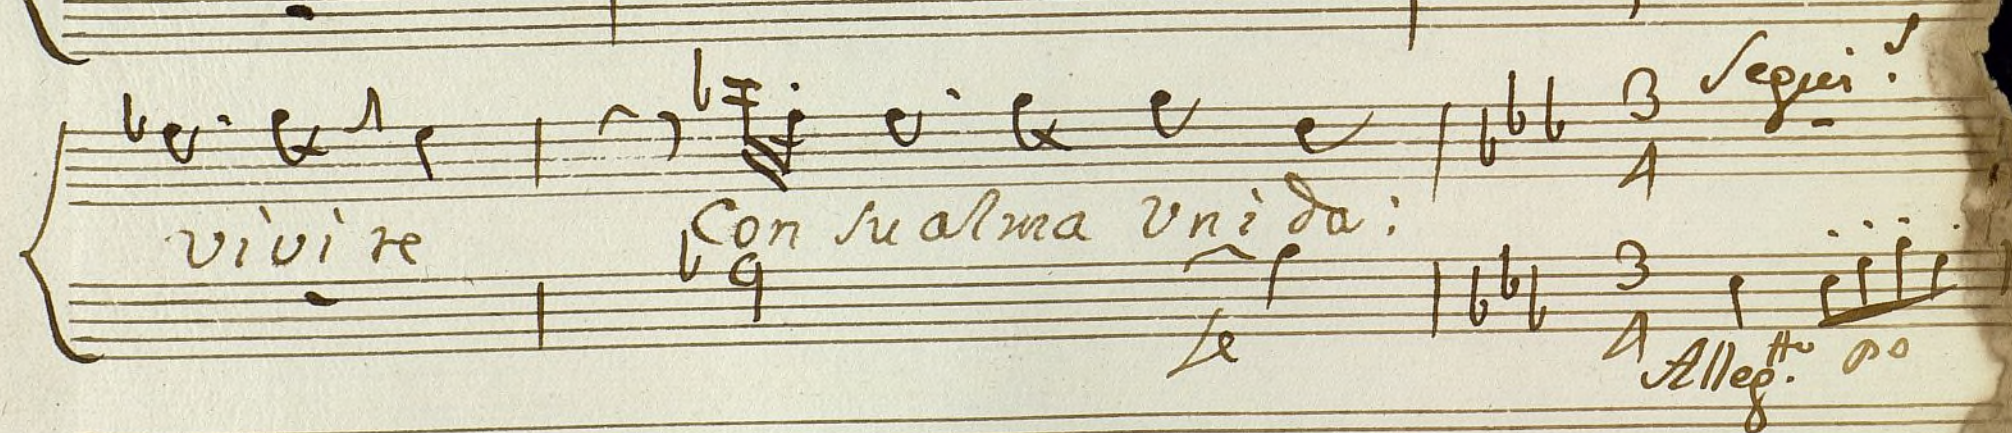 Segui.s
3
4
vivire Con su alma Vnida:
3
4
fe
Alleg.tto po